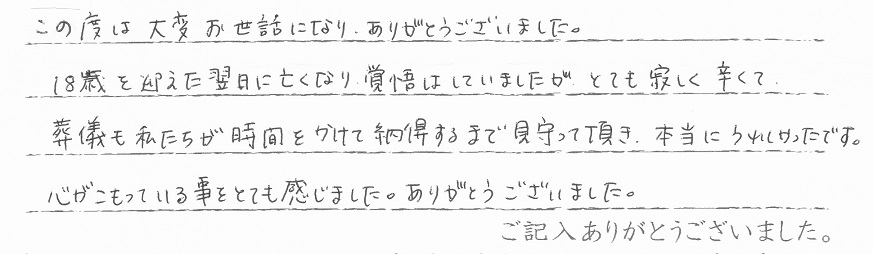 この度は大変お世話になり、ありがとうございました。
18歳を迎えた翌日に亡くなり、覚悟はしていましたが、とても寂しく辛くて、
葬儀も私たちが時間をかけて納得するまで見守って頂き、本当にうれしかったです。
心がこもっている事をとても感じました。ありがとうございました。
ご記入ありがとうございました。